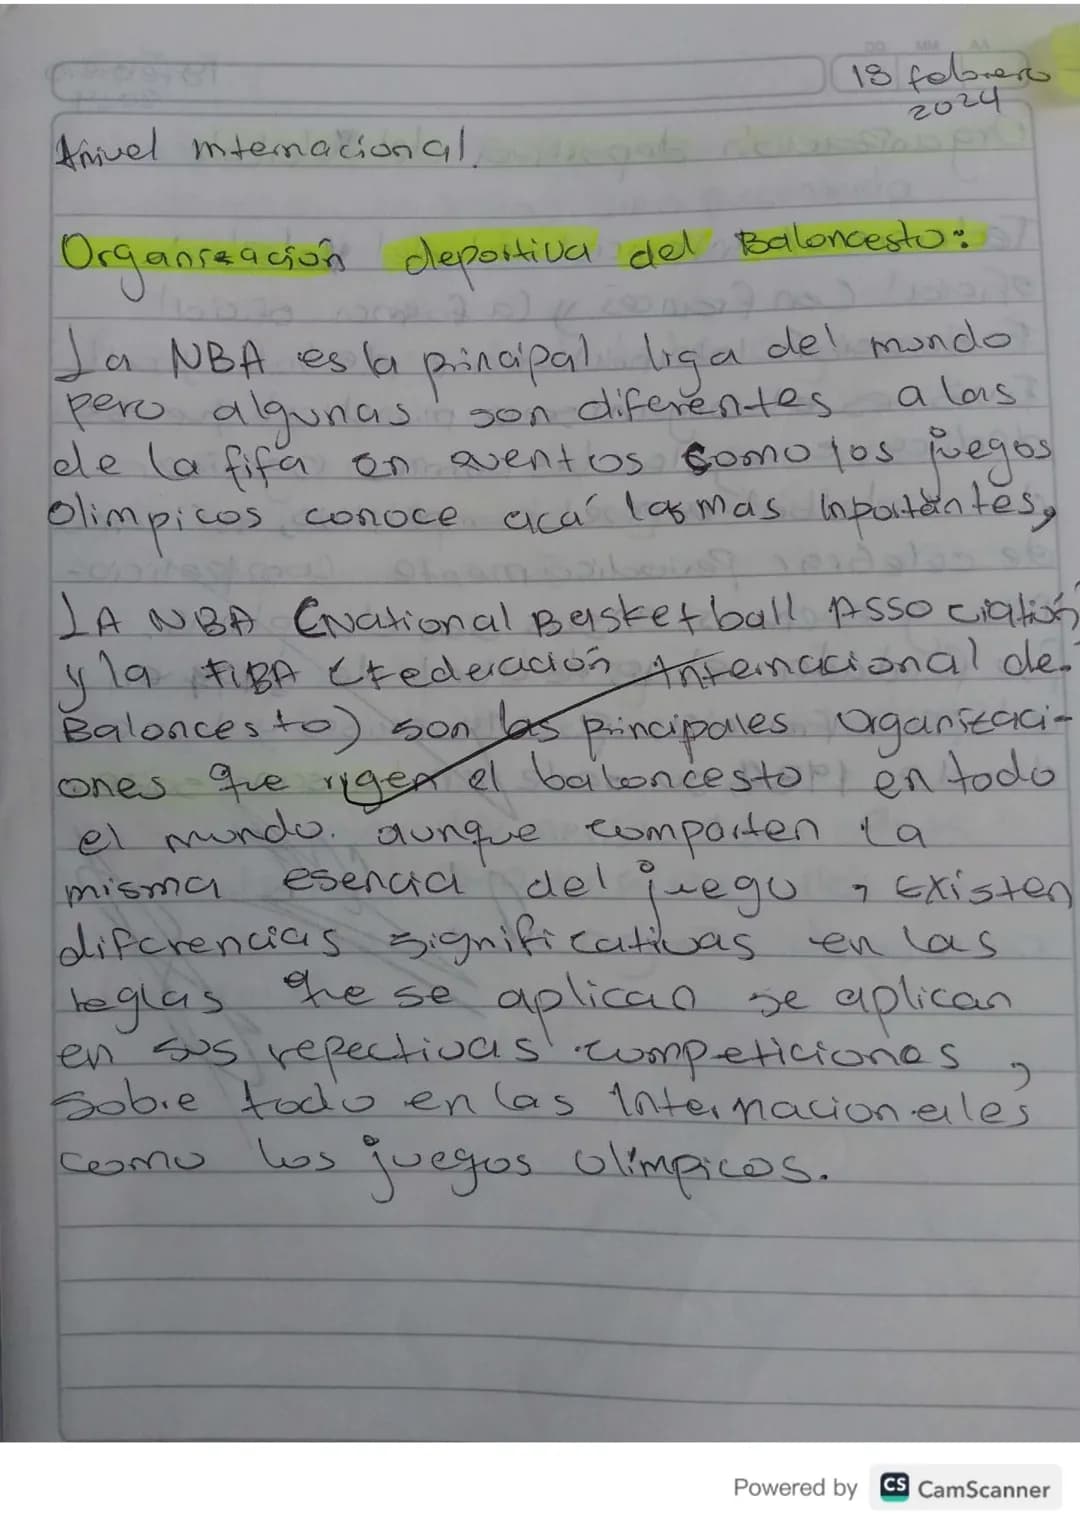 18 febrero
2024
Anivel internacional.
Organización deportiva del Baloncesto:
La NBA es la principal liga del mundo
pero algunas son diferentes a las
de la fifa en eventos como los juegos
Olimpicos conoce acá las mas inportantes,
LA NBA (National Basketball Association
y la FIBA (Federación Internacional de
Baloncesto) son las principales organizaci-
ones que rigen el baloncesto en todo
el mundo. aunque comparten la
misma esencia del juego, Existen
diferencias significativas en las
reglas que se aplican se aplican
en sus repectivas competiciones,
Sobre todo en las Internacionales
como los juegos olimpicos.
Powered by CS CamScanner